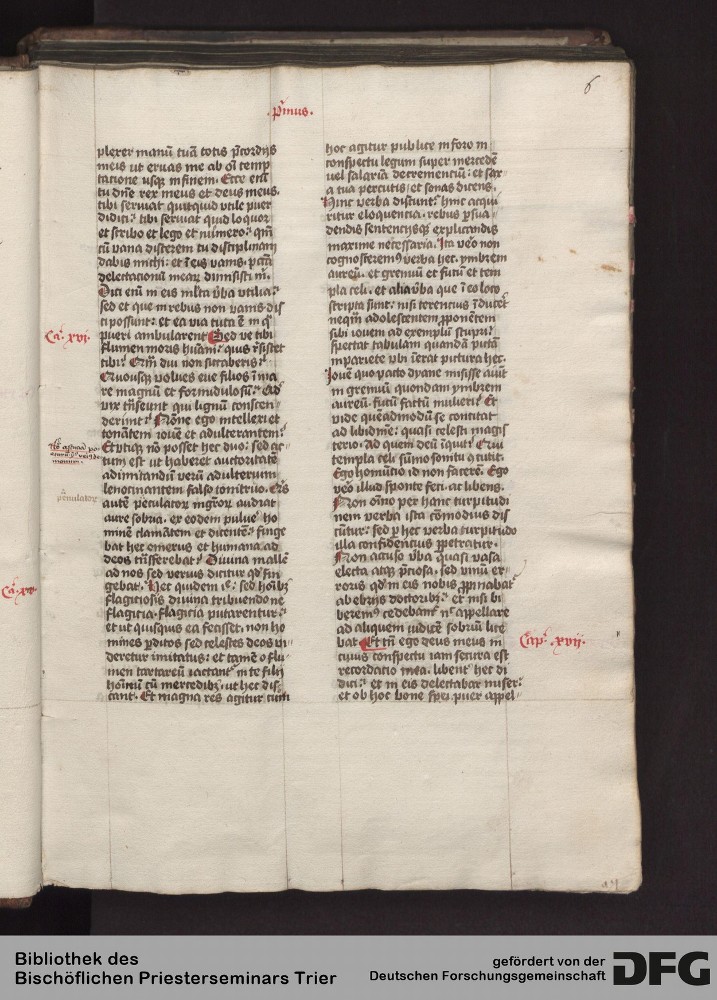 6
.Pͥmus.
plexer manū tuā totis p̄cordijs
meis ut eruas me ab oī temp
tacione usqꝫ in finem. Ecce em̄
tu dn̄e rex meus et deus meus.
tibi seruiat quitquid vtile puer
didici. tibi seruiat quid loquor
et scribo et lego et numero. qm̄
cū vana discerem tu disciplinam
dabas michi. et ī eis vanis. pctā
delectationū mearꝫ dimisisti m̄.
Dici em̄ in eis ml̄ta v̄ba vtilia.
sed et que in rebus non vanis dis
ci possunt. et ea via tuta ē in q̄
pueri ambularent Sed ve tibi
Ca. xvi.
flumen moris hūani. quis r̄sistet
tibi. Qm̄ diu non siccaberis.
Quousqꝫ volues eue filios ī ma
re magnū et formidulosū. Qd̓
vix tn̄seunt qui lignū conscen
derint. Nōne ego in te legi et
tonātem iouē et adulterantem.
Et vtiqꝫ nō posset hec duo. sed ac
tum est ut haberet auctoritatē
ad imitandū verū adulterium
lenocinantem falso tonitruo. Qis
autē penulatorꝫ mgr̄orꝫ audiat
p̄enulatorꝫ
aure sobria. ex eodem pulue̓ ho
minē clamātem et dicentē. finge
bat hec omerus et humana ad
deos tn̄sferebat. Diuina mallē
ad nos sed verius dicitur qd̓ fin
gebat. Hec quidem is. sed hoībꝫ
Ca. xvi
flagiciosis diuina tribuendo ne
flagicia flagicia putarentur.
et ut quisquis ea fecisset. non ho
mines p̄ditos sed celestes deos vi
deretur imitatus. et tamē o flu
men tartareū iactant̓ in te filij
hoīnū cū mercedibꝫ. ut hec dis
cant. Et magna res agitur cum
hoc agitur publice in foro in
conspectu legum super mercedē
vel salaria decernentiū. et sax
a tua percutis. et sonas dicens.
Hinc verba discunt̓. hinc acqui
ritur eloquencia. rebus p̄sua
dendis sentencijsqꝫ explicandis
maxime necessaria. Ita veo̓ non
cognoscerem9 verba hec. ymbrem
aureū. et gremiū et fucū et tem
pla celi. et alia v̄ba que ī eo loco
scripta sunt. nisi terencius īduceret
neqm̄ adolescentem p̄ponentem
sibi iouem ad exemplū stupri.
spectat tabulam quandā pictā
in pariete vbi īerat pictura hec.
Iouē quo pacto dyane misisse aiūt
in gremiū quondam ymbrem
aureū. fucū factū mulieri. Et
vide quēadmodū se concitat
ad libidinē. quasi celesti magis
terio. At quem deū īquit. Qui
templa celi sūmo sonitu ꝯcutit.
Ego homūtio id non facerē. Ego
veo̓ illud sponte feci. ac libens.
Non oīno per hanc turpitudi
nem verba ista cōmodius dis
cūtur. sed p̄ hec verba turpitudo
illa confidencius p̄petratur.
Non accuso v̄ba quasi vasa
electa atqꝫ p̄ciosa. sed vinū er
roris qd̓ in eis nobis p̄pinabat̓
ab ebrijs doctoribꝫ. et nisi bi
berem9 cedebam̓. nͨ appellare
ad aliquem iudicē sobriū lice
bat Et tn̄ ego deus meus in
Cap. xvij.
cuius conspectu iam secura est
recordacio mea. libent̓ hec di
dici. et in eis delectabar miser.
et ob hoc bone spei puer appel
Bibliothek des
Bischöflichen Priesterseminars Trier
gefördert von der
Deutschen Forschungsgemeinschaft
DFG